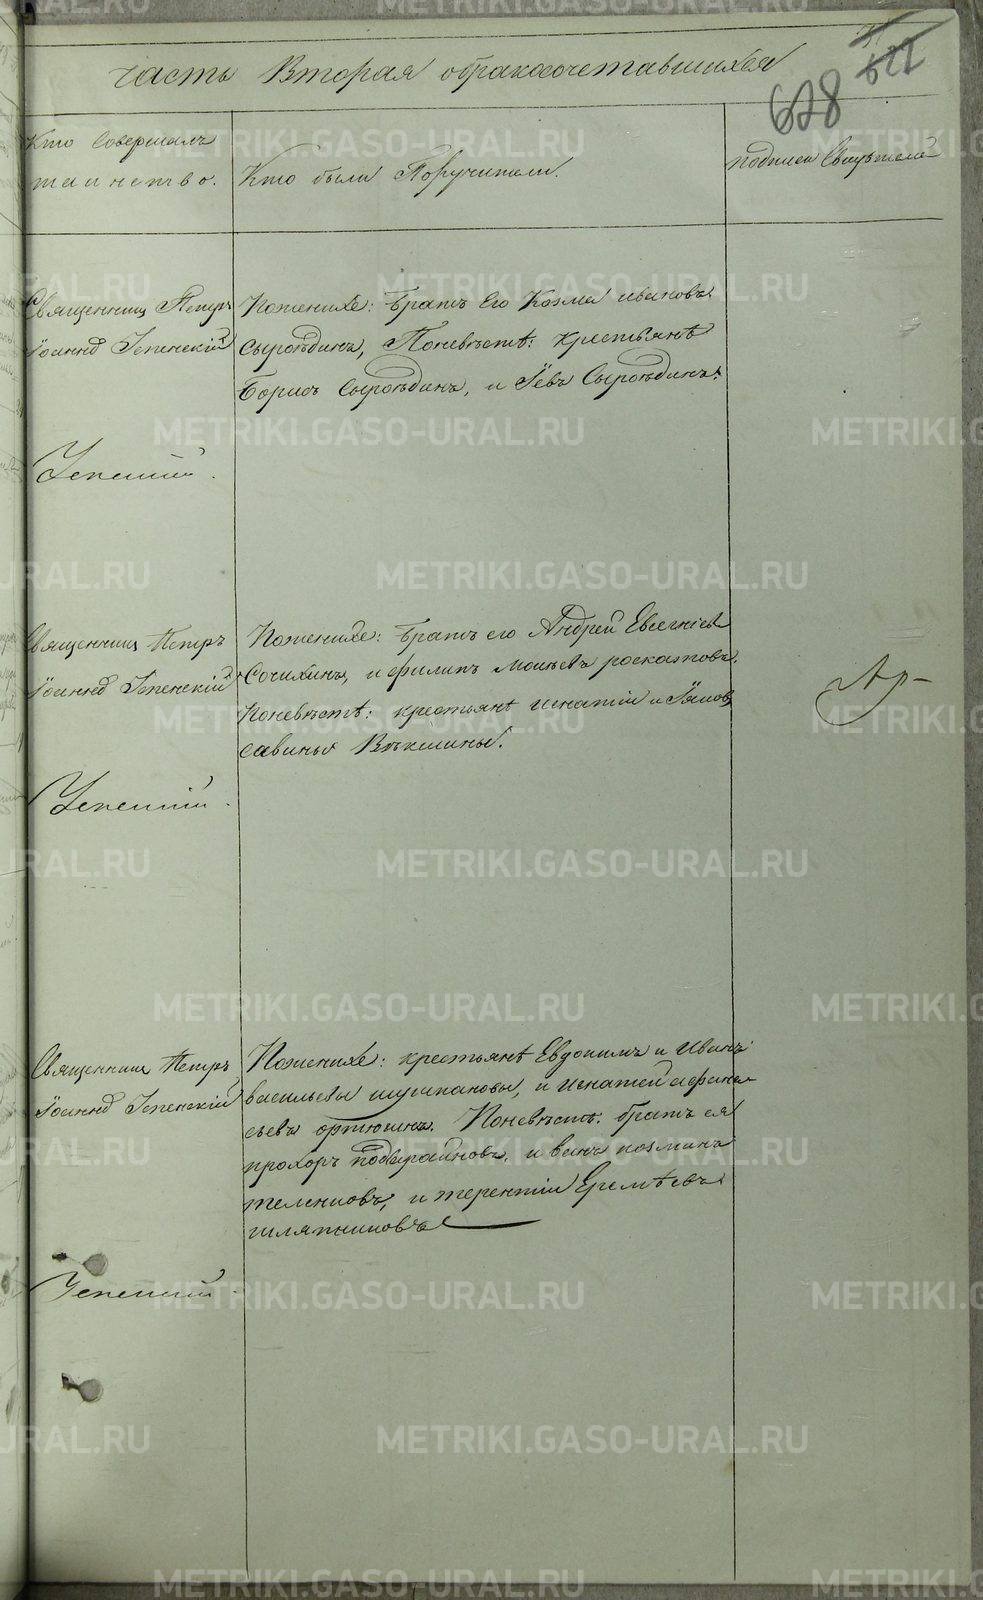 часть Вторая обракосочетавшихся
628
Кто Совершалъ
таинство.
Кто были Поручители.
подписи Свидѣтелей
Священникъ Петръ
Іоанновъ Успенскій
Поженихѣ: братъ Его Козма ивановъ
Сыроѣдинъ, Поневѣстѣ: крестьянѣ
Борисъ Сыроѣдинъ, и Іевъ Сыроѣдинъ.
Успенскій.
Священникъ Петръ
Іоанновъ Успенскій
Поженихѣ: братъ его Андрей Евсегніевъ
Сочихинъ, и филипъ Моисеевъ роскатовъ.
Поневѣстѣ: крестьянѣ игнатій и Іяковъ
савины Вѣкшины.
Успенскій.
Священникъ Петръ
Іоанновъ Успенскій
Поженихѣ: крестьянѣ Евдокимъ и Иванъ
васильевы шушпановы, и игнатей афана
сьевъ ортюшинъ. Поневѣстѣ: братъ ея
прохоръ иванъ козминъ
и терентій Еремѣевъ
шляпниковъ
Успенскій.
METRIKI.GASO-URAL.RU